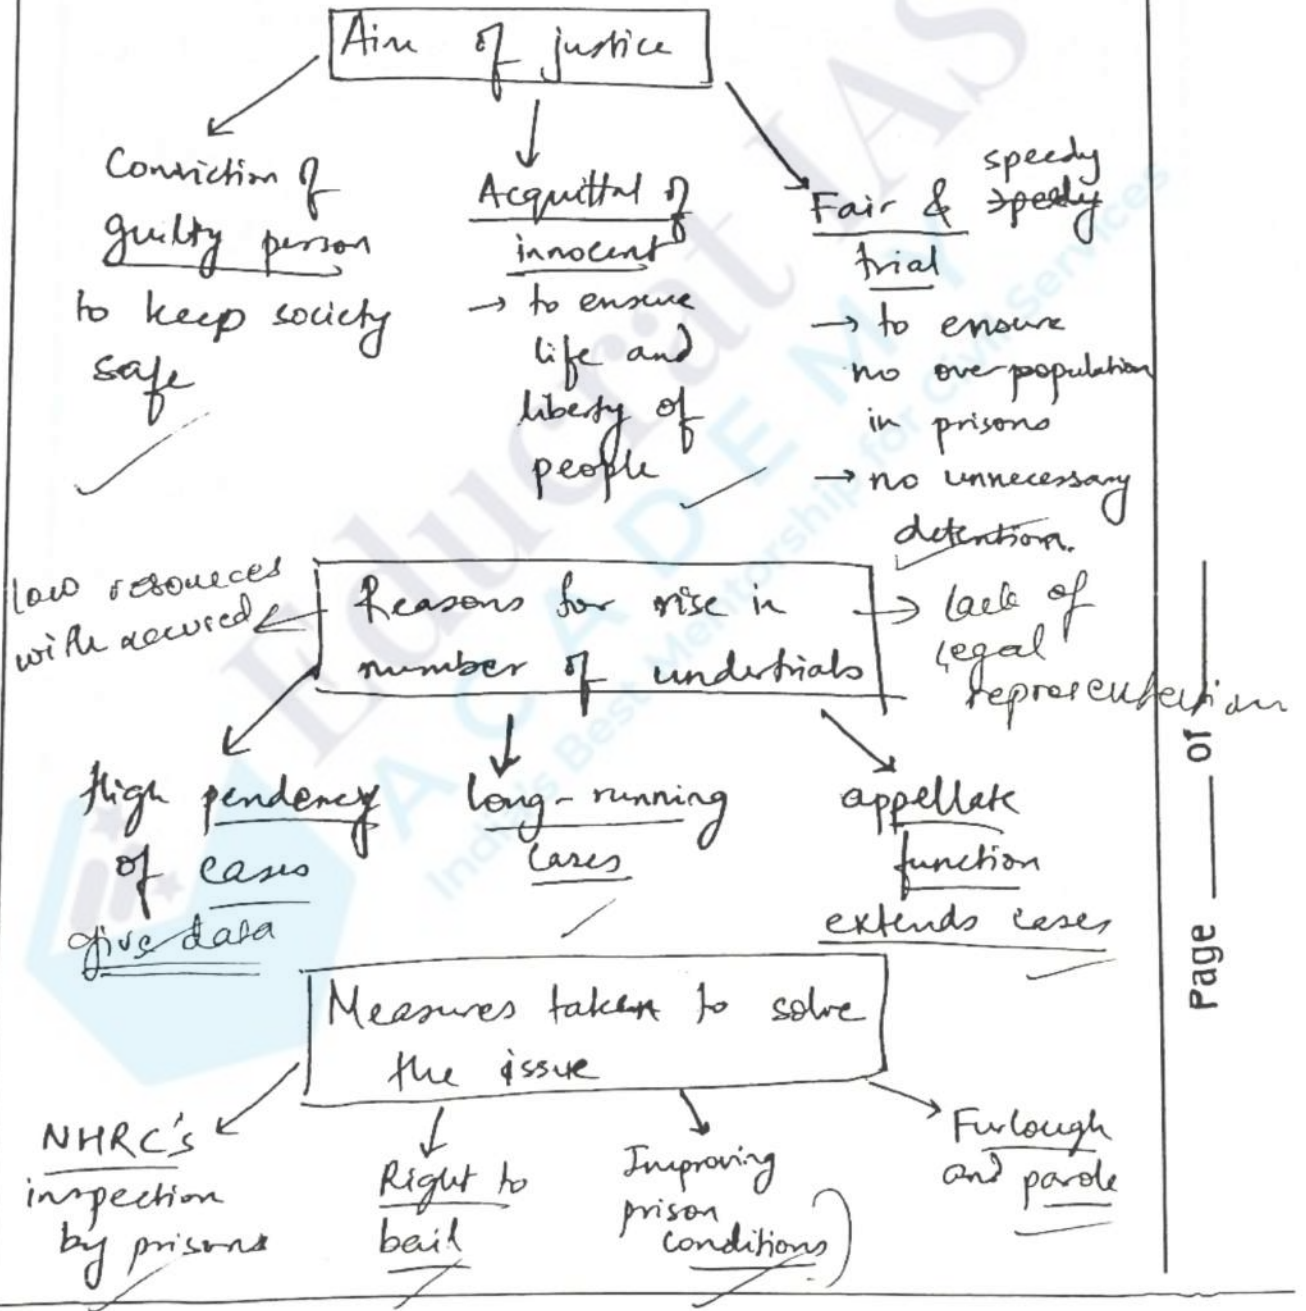 Aim of justice
Conviction of
guilty person
to keep society
safe
Acquittal of
innocent
→ to ensure
life and
liberty of
people
speedy
Fair & speedy
trial
→ to ensure
no over-population
in prisons
→ no unnecessary
detention.
low resoueces
with accused
Reasons for rise in
number of undertrials
lack of
legal
representation
High pendency
of cases
give data
long-running
cases
appellate
function
extends cases
Measures taken to solve
the issue
NHRC's
inspection
by prisons
Right to
bail
Improving
prison
conditions
Furlough
and parole
Page of
Educrat IAS
ACADEMY
India's Best Mentorship for Civil Services